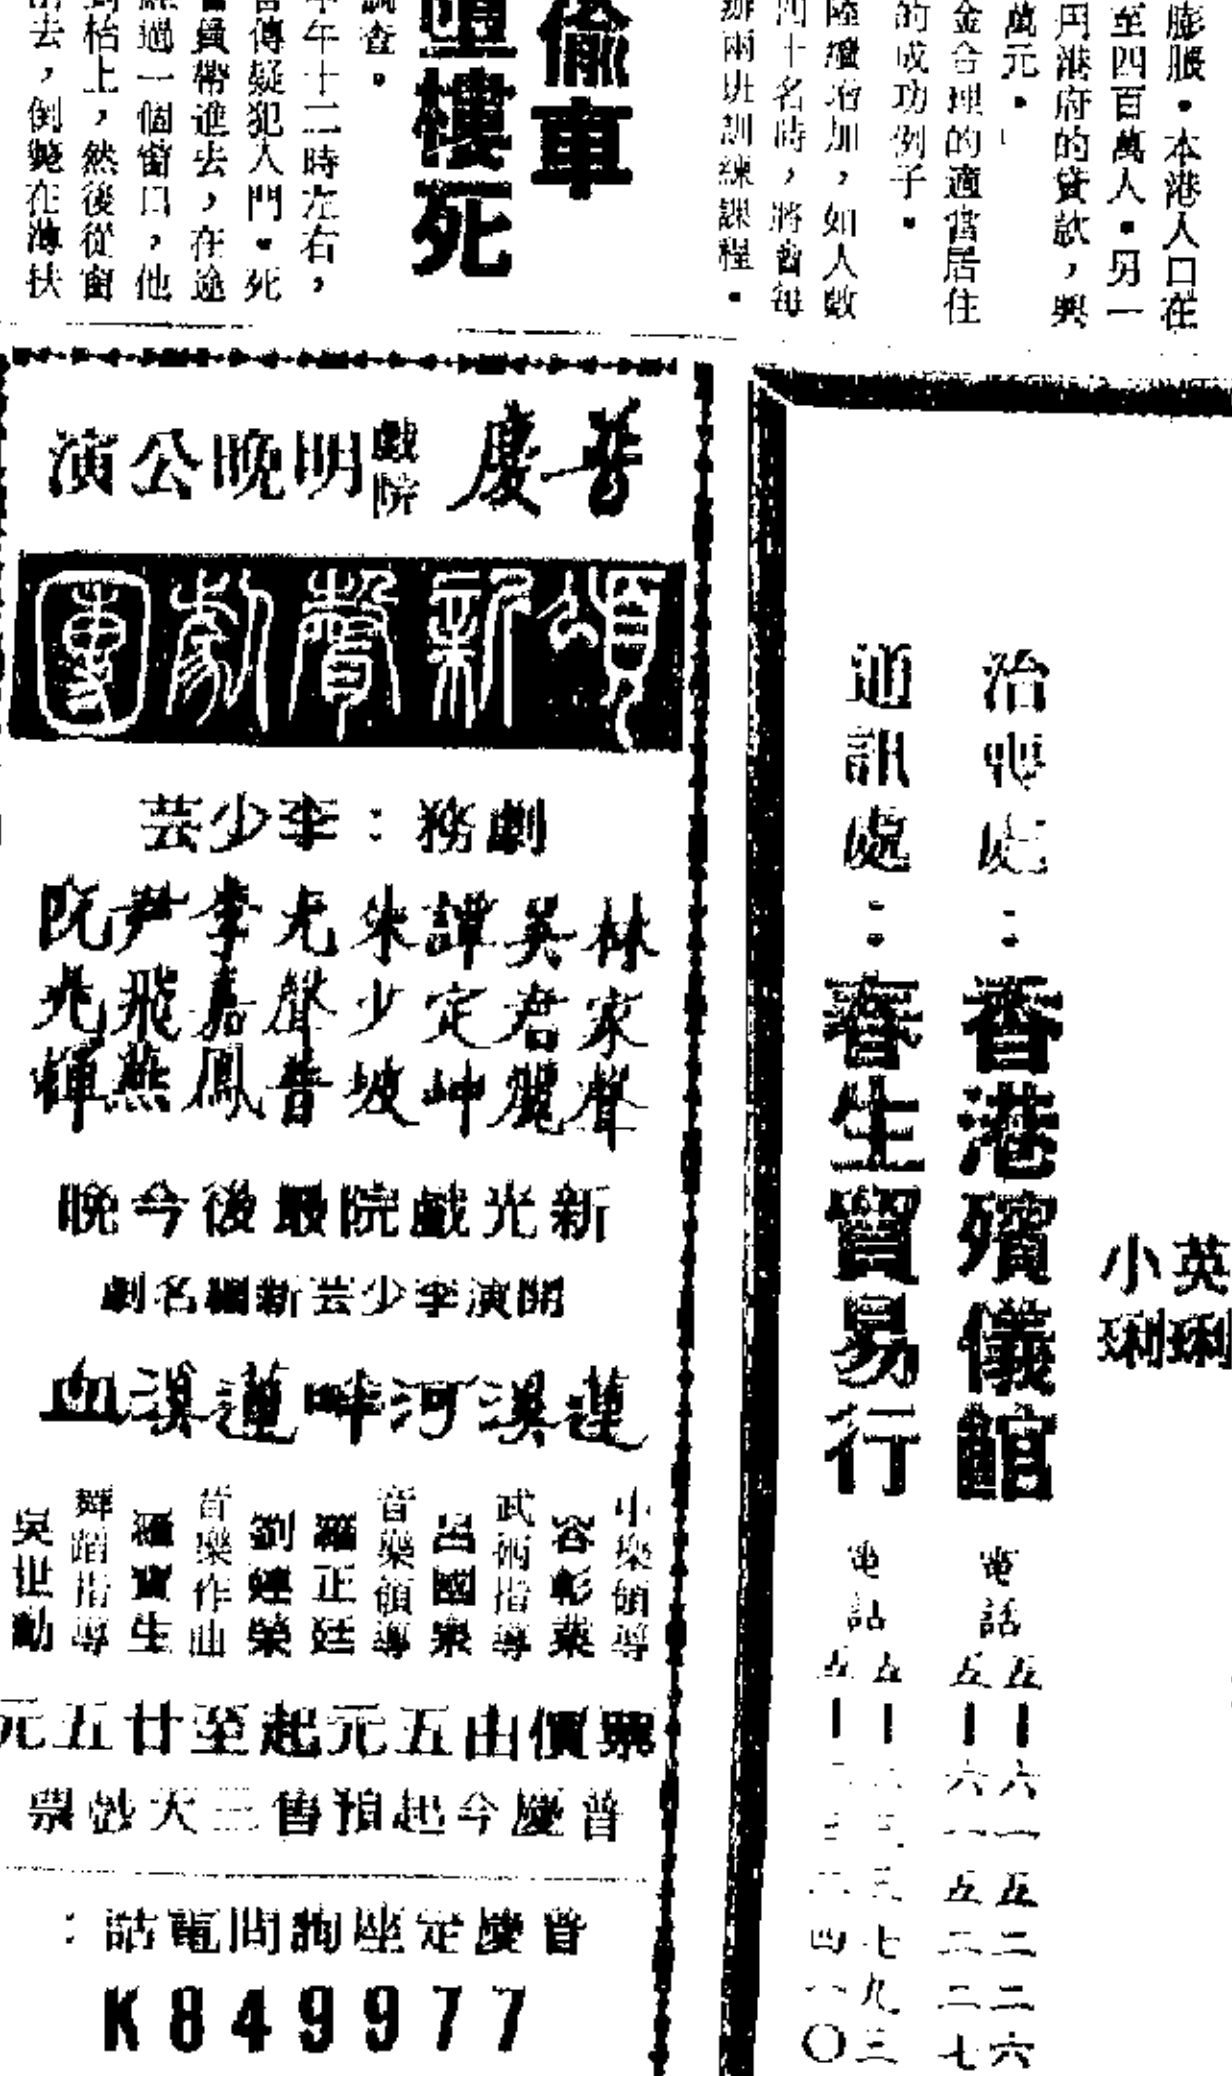 膨脹。本港人口在
至四百萬人。另一
用港府的貸款，興
萬元。
金合理的適當居住
的成功例子。
陸續增加，如人數
四十名時，將會每
辦兩班訓練課程。
偷車
墮樓死
調查。
午十二時左右，
傳疑犯入門。死
員帶進去，在途
經過一個窗口，他
到枱上，然後從窗
出去，倒斃在
普慶戲院明晚公演
頌新聲劇團
劇務：李少芸
林家聲
吳君麗
譚定坤
朱少坡
尤聲普
李嘉鳳
尹飛燕
阮兆輝
新光戲院最後今晚
開演李少芸新編名劇
蓮溪河畔蓮溪血
小樂領導
容彰業
武術指導
呂國泉
音樂領導
羅正廷
劉建榮
音樂作曲
羅寶生
舞蹈指導
吳世勳
票價由五元起至廿五元
普慶今起預售三天戲票
普慶定座詢問電話：
K849977
英琍
小琍
治喪處：香港殯儀館
電話
五—六一五二二六
五—六一五二二七
通訊處：春生貿易行
電話